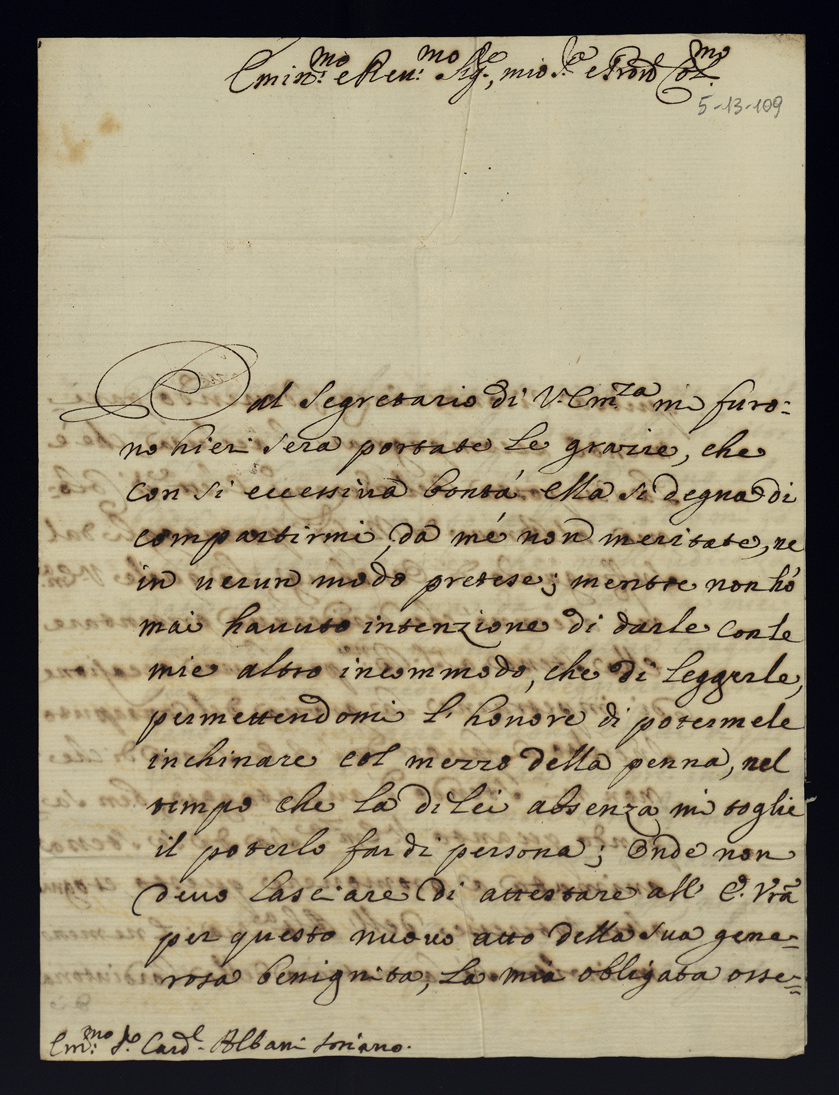 Emin.mo e Reu.mo Sig.re, mio S.re e Pron Col.mo
5-13-109
Dal Segretario di V. Em.za mi furo:
no hieri sera portate le grazie, che
con si eccessiva bontá ella si degna di
compartirmi, da mé non meritate, ne
in uerun modo pretese; mentre non hó
mai hauuto intenzione di darle con le
mie altro incommodo, che di leggerle,
permettendomi l'honore di potermele
inchinare col mezzo della penna, nel
tempo che la di lei absenza mi toglie
il poterlo far di persona; Onde non
deuo lasciare di attestare all' E. Vra
per questo nuouo atto della sua gene=
rosa benignita, la mia obligata osse=
Em.mo S.re Card.l Albani Soriano.